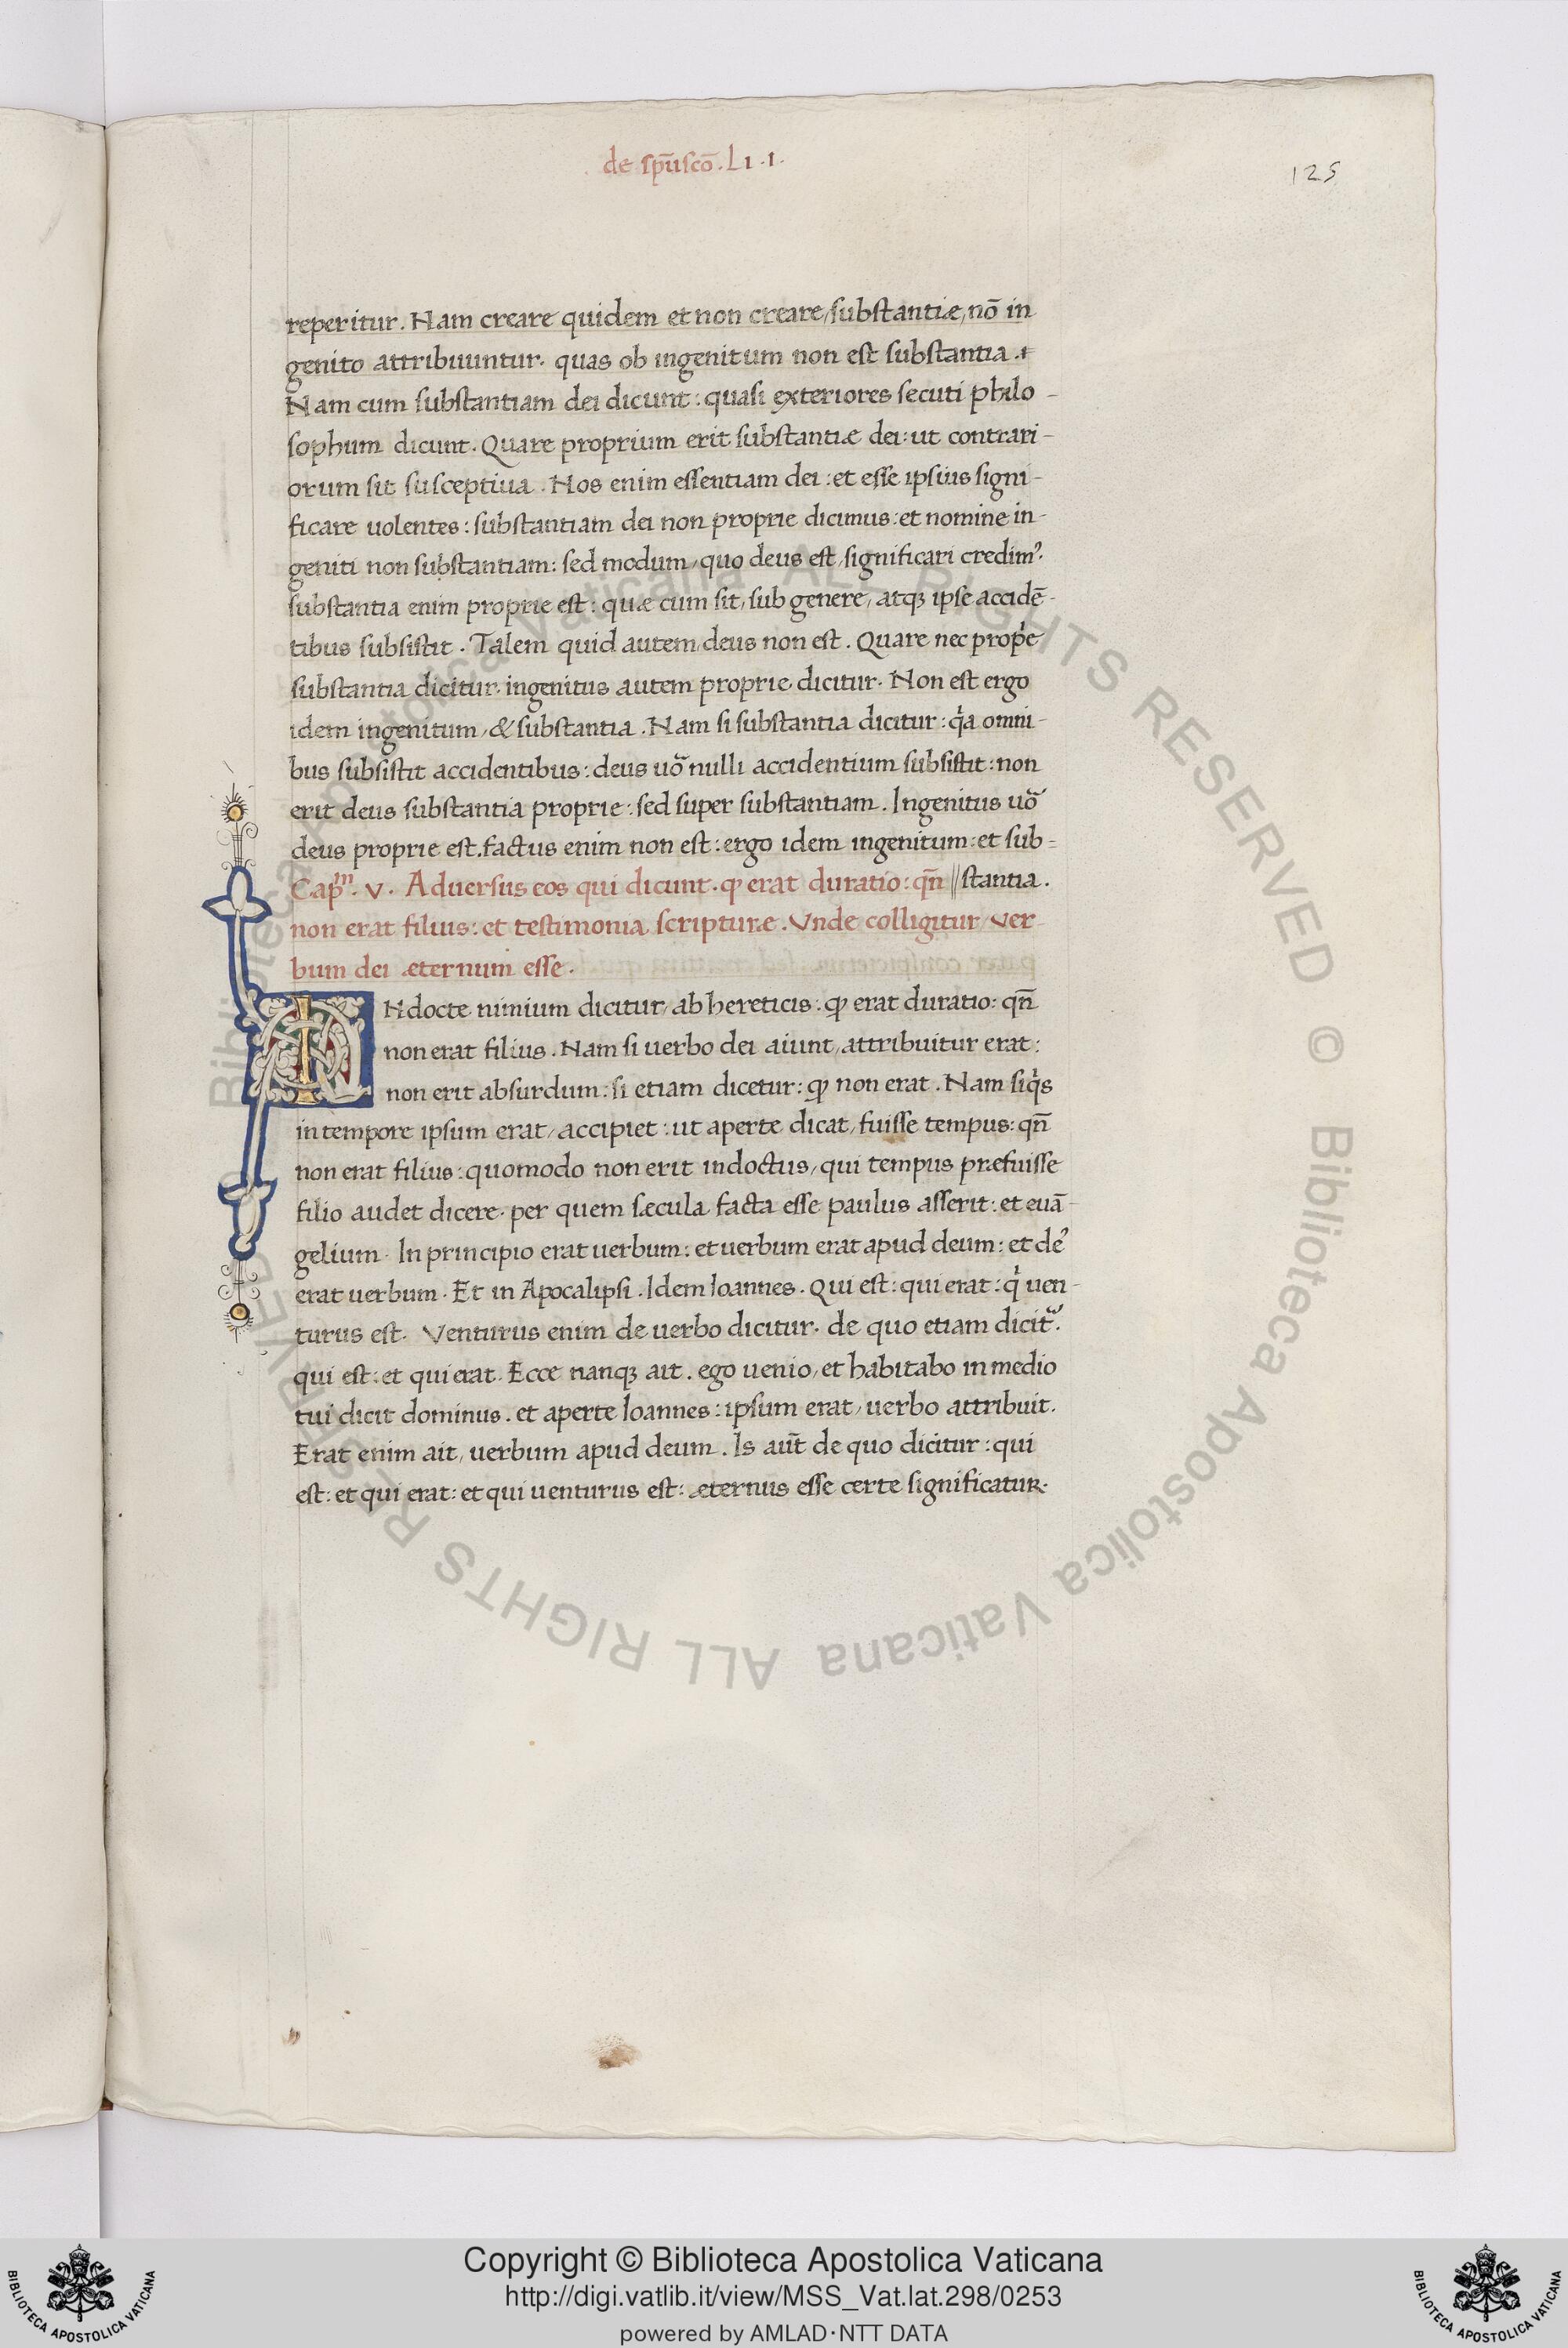 de sp̄u scō. Li. 1.
125
reperitur. Nam creare quidem et non creare, substantiæ, nō in
genito attribuuntur. quas ob ingenitum non est substantia.
Nam cum substantiam dei dicunt: quasi exteriores secuti philo-
sophum dicunt. Quare proprium erit substantiæ dei: ut contrari-
orum sit susceptiua. Nos enim essentiam dei: et esse ipsius signi-
ficare uolentes: substantiam dei non proprie dicimus: et nomine in-
geniti non substantiam: sed modum, quo deus est, significari credimꝰ.
substantia enim proprie est: quæ cum sit, sub genere, atqꝫ ipse accidē-
tibus subsistit. Talem quid autem, deus non est. Quare nec prop̍e
substantia dicitur. ingenitus autem proprie dicitur. Non est ergo
idem ingenitum, & substantia. Nam si substantia dicitur: q̍a omni-
bus subsistit accidentibus: deus uō nulli accidentium subsistit: non
erit deus substantia proprie: sed super substantiam. Ingenitus uō
deus proprie est. factus enim non est: ergo idem ingenitum: et sub-
Cap̄m. V. Aduersus eos qui dicunt. ꝙ erat duratio: qn̄ // stantia.
non erat filius: et testimonia scripturæ. Vnde colligitur, ver-
bum dei æternum esse.
INdocte nimium dicitur, ab hereticis: ꝙ erat duratio: qn̄
non erat filius. Nam si uerbo dei aiunt, attribuitur erat:
non erit absurdum: si etiam dicetur: ꝙ non erat. Nam siq̍s
in tempore ipsum erat, accipiet: ut aperte dicat, fuisse tempus: qn̄
non erat filius: quomodo non erit indoctus, qui tempus præfuisse
filio audet dicere. per quem sæcula facta esse paulus asserit: et euā-
gelium. In principio erat uerbum: et uerbum erat apud deum: et deꝰ
erat uerbum. Et in Apocalipsi. Idem Ioannes. Qui est: qui erat: q̍ uen-
turus est. Venturus enim de uerbo dicitur. de quo etiam dicit᷑.
qui est: et qui erat. Ecce nanqꝫ ait. ego uenio, et habitabo in medio
tui dicit dominus. et aperte Ioannes: ipsum erat, uerbo attribuit.
Erat enim ait, uerbum apud deum. Is aūt de quo dicitur: qui
est: et qui erat: et qui uenturus est: æternus esse certe significatur.
Copyright © Biblioteca Apostolica Vaticana
http://digi.vatlib.it/view/MSS_Vat.lat.298/0253
powered by AMLAD·NTT DATA
BIBLIOTECA APOSTOLICA VATICANA
BIBLIOTECA APOSTOLICA VATICANA
Biblioteca Apostolica Vaticana ALL RIGHTS RESERVED © Biblioteca Apostolica Vaticana ALL RIGHTS RESERVED